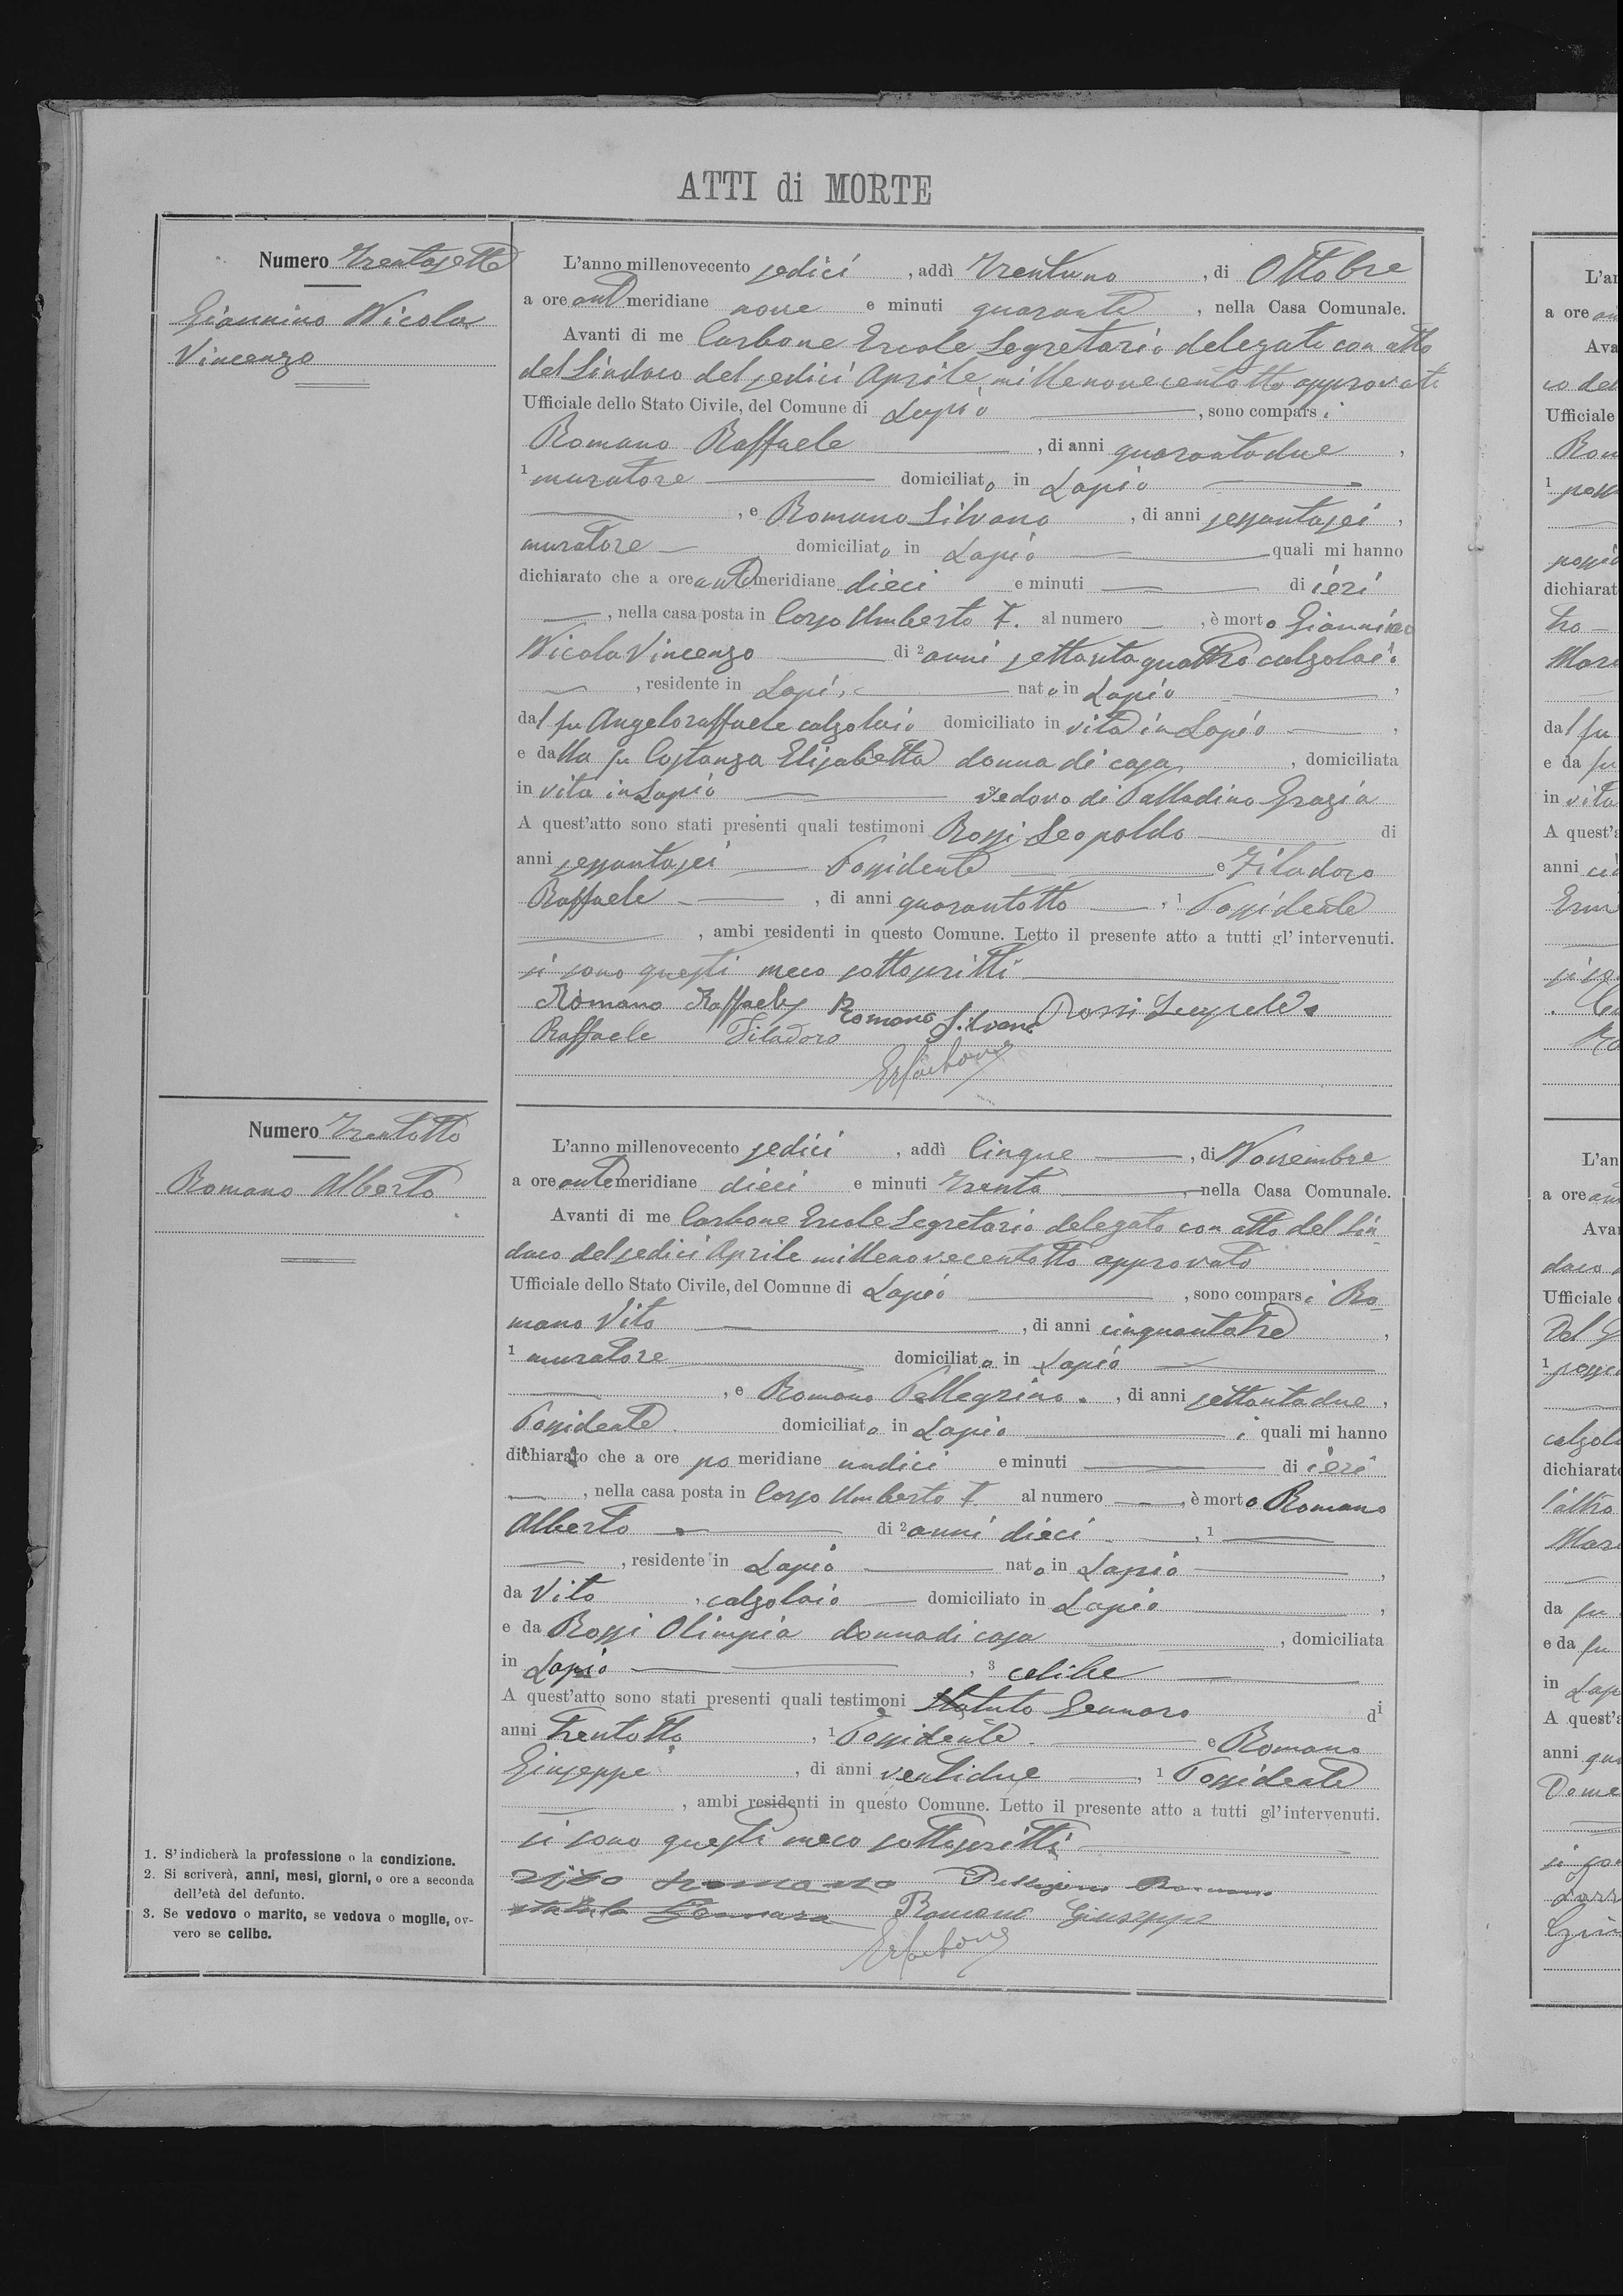 ATTI di MORTE
Numero Trentasette
Giannino Nicola
Vincenzo
L'anno millenovecento sedici, addì Trentuno, di Ottobre
a ore antimeridiane nove e minuti quaranta, nella Casa Comunale.
Avanti di me Carbone Ercole Segretario delegato con atto
del Sindaco del sedici Aprile millenovecentotto approvato
Ufficiale dello Stato Civile, del Comune di Lapio, sono comparsi
Romano Raffaele, di anni quarantadue,
1 muratore domiciliato in Lapio
, e Romano Silvano, di anni sessantasei,
muratore domiciliato in Lapio quali mi hanno
dichiarato che a ore antemeridiane dieci e minuti di ieri
, nella casa posta in Corso Umberto I. al numero , è morto Giannino
Nicola Vincenzo di 2 anni settantaquattro calzolaio
, residente in Lapio nato in Lapio,
dal fu Angeloraffaele calzolaio domiciliato in vita in Lapio,
e dalla fu Costanza Elisabetta donna di casa, domiciliata
in vita in Lapio vedovo di Palladino Grazia
A quest'atto sono stati presenti quali testimoni Rossi Leopoldo di
anni sessantasei Possidente e Filadoro
Raffaele, di anni quarantotto, 1 Possidente
, ambi residenti in questo Comune. Letto il presente atto a tutti gl'intervenuti.
si sono questi meco sottoscritti
Romano Raffaele Romano Silvano Rossi Leopoldo
Raffaele Filadoro
Numero Trentotto
Romano Alberto
L'anno millenovecento sedici, addì Cinque, di Novembre
a ore antemeridiane dieci e minuti Trenta, nella Casa Comunale.
Avanti di me Carbone Ercole Segretario delegato con atto del Sin-
daco del sedici Aprile millenovecentotto approvato
Ufficiale dello Stato Civile, del Comune di Lapio, sono comparsi Ro-
mano Vito, di anni cinquantatre,
1 muratore domiciliato in Lapio
, e Romano Pellegrino, di anni settantadue,
Possidente domiciliato in Lapio i quali mi hanno
dichiarato che a ore pomeridiane undici e minuti di ieri
, nella casa posta in Corso Umberto I al numero , è morto Romano
Alberto di 2 anni dieci, 1
, residente in Lapio nato in Lapio,
da Vito, calzolaio domiciliato in Lapio,
e da Rossi Olimpia donna di casa, domiciliata
in Lapio, 3 celibe
A quest'atto sono stati presenti quali testimoni Statuto Gennaro di
anni Trentotto, 1 Possidente e Romano
Giuseppe, di anni ventidue, 1 Possidente
, ambi residenti in questo Comune. Letto il presente atto a tutti gl'intervenuti.
si sono questi meco sottoscritti
vito romano Pellegrino Romano
statuto Gennaro Romano Giuseppe
1. S'indicherà la professione o la condizione.
2. Si scriverà, anni, mesi, giorni, o ore a seconda
dell'età del defunto.
3. Se vedovo o marito, se vedova o moglie, ov-
vero se celibe.